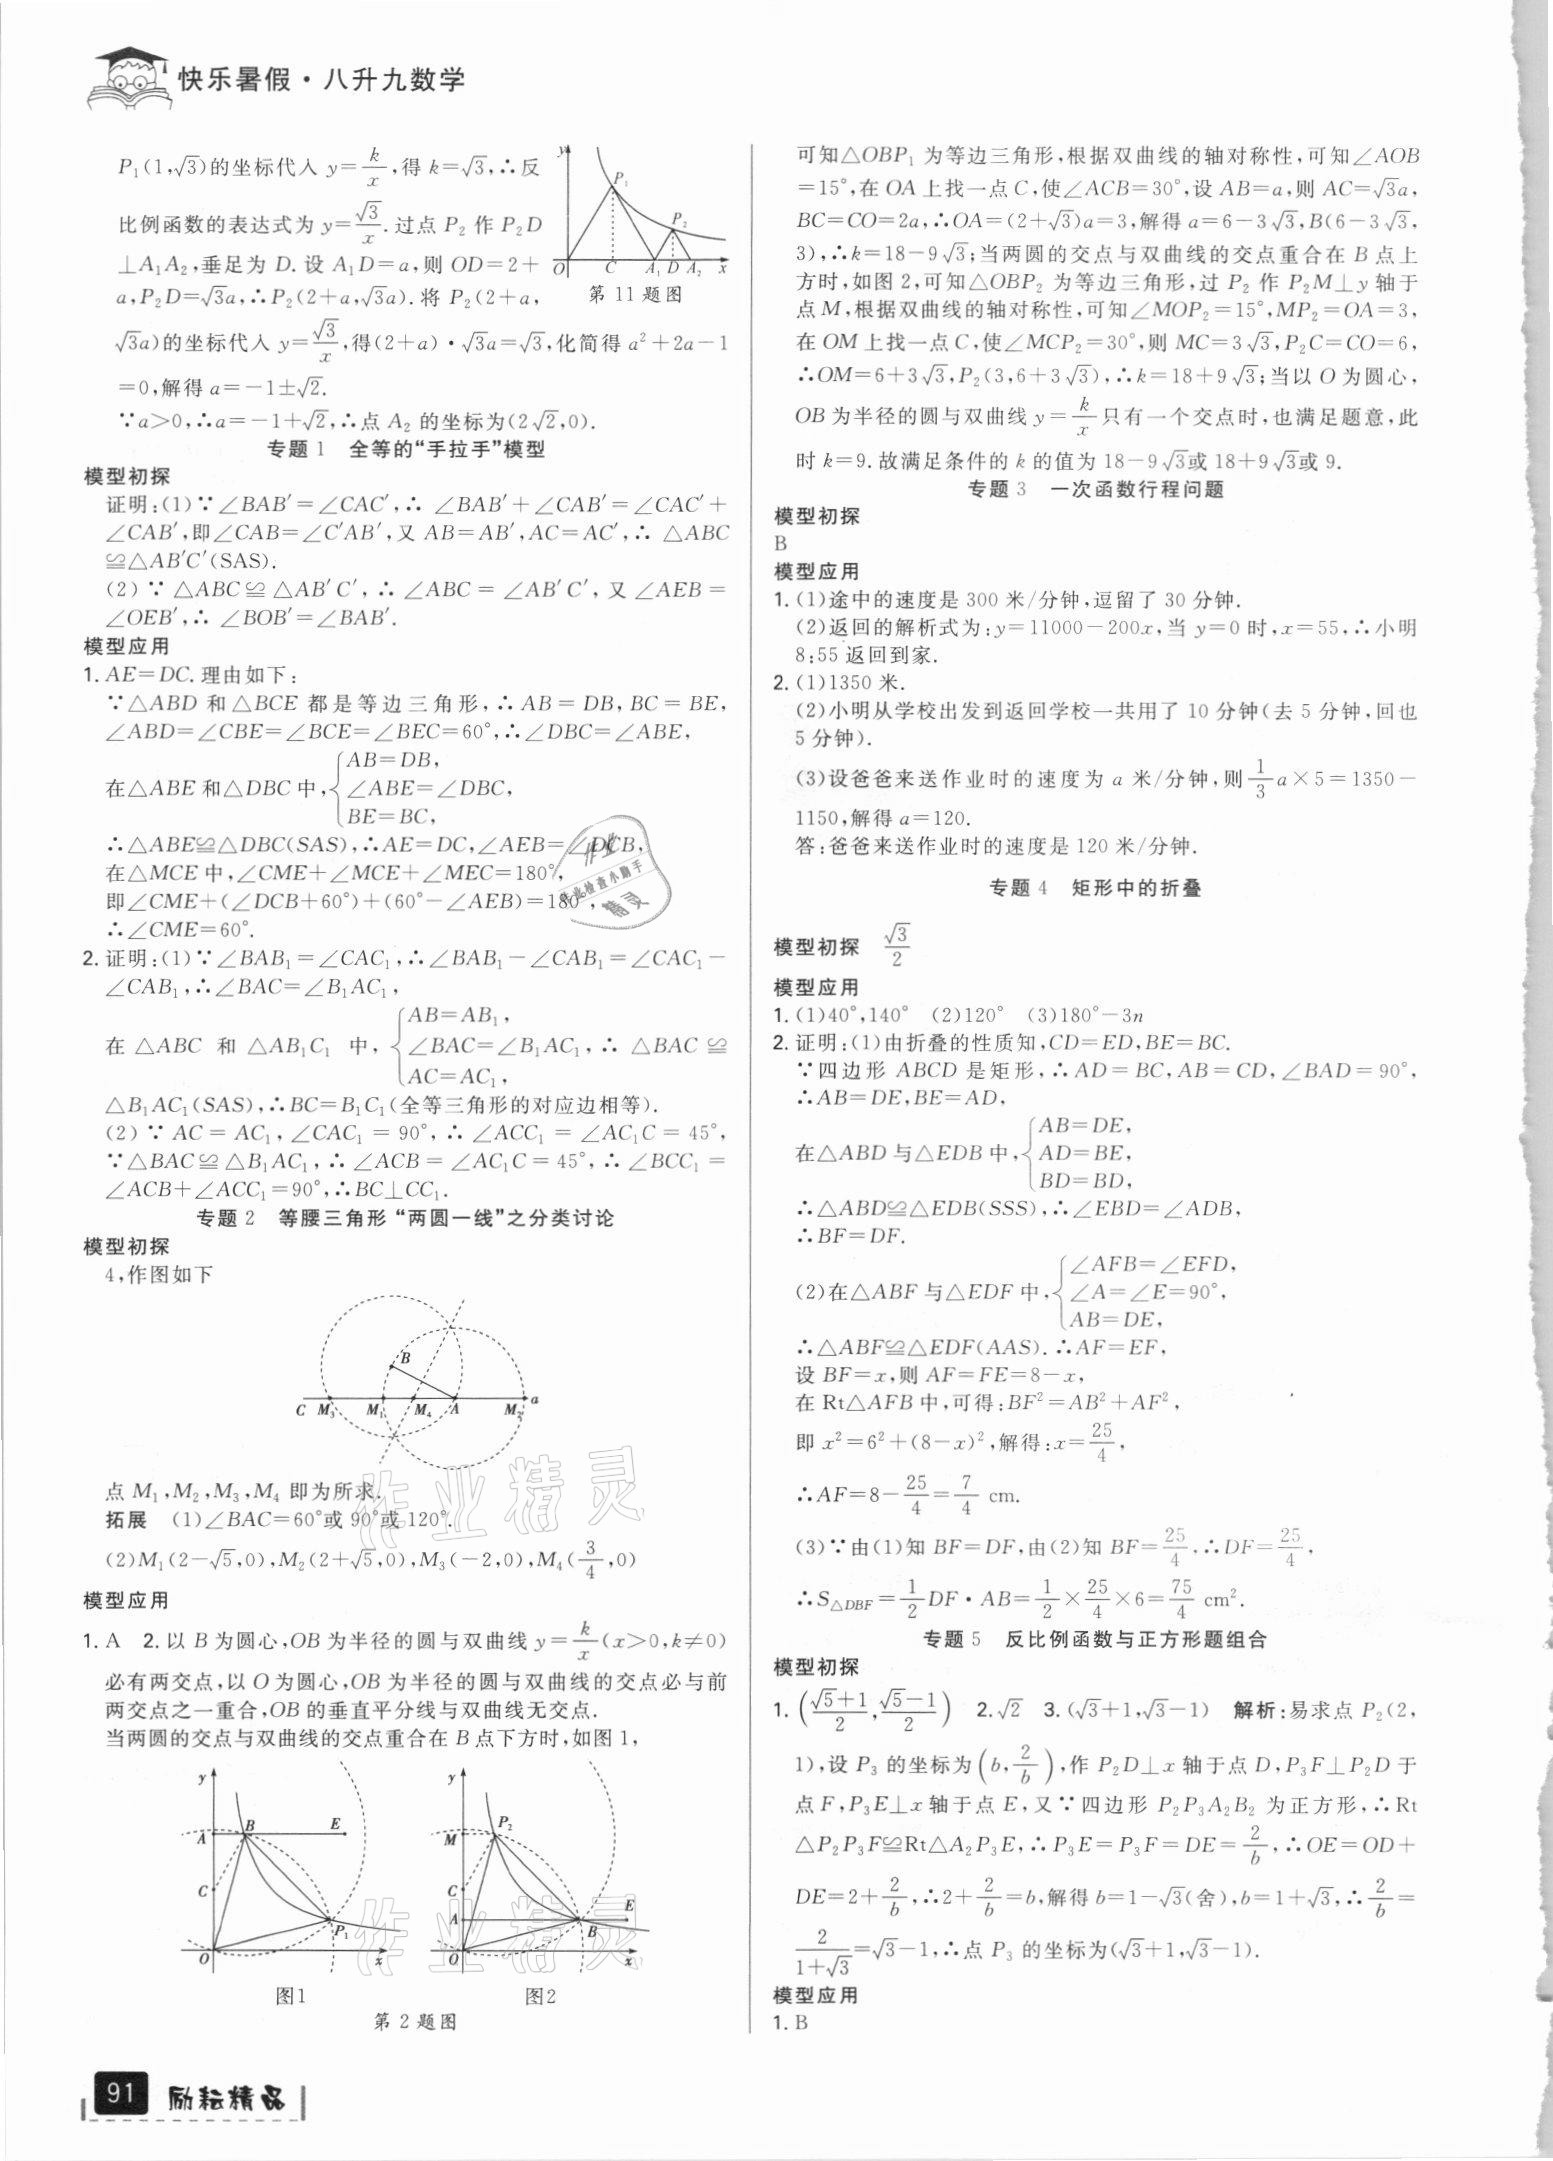 快乐暑假·八升九数学
P₁(1,√3)的坐标代入 y=k/x,得 k=√3,∴反
比例函数的表达式为 y=√3/x.过点 P₂ 作 P₂D
⊥A₁A₂,垂足为 D.设 A₁D=a,则 OD=2+
a,P₂D=√3a,∴P₂(2+a,√3a).将 P₂(2+a,
√3a)的坐标代入 y=√3/x,得(2+a)·√3a=√3,化简得 a²+2a-1
=0,解得 a=-1±√2.
∵a>0,∴a=-1+√2,∴点 A₂ 的坐标为(2√2,0).
y
P₁
P₂
O C A₁ D A₂ x
第 11 题图
专题 1 全等的“手拉手”模型
模型初探
证明:(1)∵∠BAB′=∠CAC′,∴ ∠BAB′+∠CAB′=∠CAC′+
∠CAB′,即∠CAB=∠C′AB′,又 AB=AB′,AC=AC′,∴ △ABC
≌△AB′C′(SAS).
(2) ∵ △ABC≌△AB′C′,∴ ∠ABC = ∠AB′C′,又∠AEB =
∠OEB′,∴ ∠BOB′=∠BAB′.
模型应用
1. AE=DC.理由如下:
∵△ABD 和△BCE 都是等边三角形,∴AB=DB,BC=BE,
∠ABD=∠CBE=∠BCE=∠BEC=60°,∴∠DBC=∠ABE,
在△ABE 和△DBC 中,{AB=DB,
∠ABE=∠DBC,
BE=BC,
∴△ABE≌△DBC(SAS),∴AE=DC,∠AEB=∠DCB,
在△MCE 中,∠CME+∠MCE+∠MEC=180°,
即∠CME+(∠DCB+60°)+(60°-∠AEB)=180°,
∴∠CME=60°.
2. 证明:(1)∵∠BAB₁=∠CAC₁,∴∠BAB₁-∠CAB₁=∠CAC₁-
∠CAB₁,∴∠BAC=∠B₁AC₁,
在 △ABC 和 △AB₁C₁ 中,{AB=AB₁,
∠BAC=∠B₁AC₁,∴ △BAC ≌
AC=AC₁,
△B₁AC₁(SAS),∴BC=B₁C₁(全等三角形的对应边相等).
(2) ∵ AC = AC₁,∠CAC₁ = 90°,∴ ∠ACC₁ = ∠AC₁C = 45°,
∵△BAC≌△B₁AC₁,∴∠ACB=∠AC₁C=45°,∴∠BCC₁=
∠ACB+∠ACC₁=90°,∴BC⊥CC₁.
专题 2 等腰三角形 “两圆一线”之分类讨论
模型初探
4,作图如下
B
C M₃ M₁ M₄ A M₂ a
点 M₁,M₂,M₃,M₄ 即为所求.
拓展 (1)∠BAC=60°或 90°或 120°.
(2)M₁(2-√5,0),M₂(2+√5,0),M₃(-2,0),M₄(3/4,0)
模型应用
1. A 2. 以 B 为圆心,OB 为半径的圆与双曲线 y=k/x(x>0,k≠0)
必有两交点,以 O 为圆心,OB 为半径的圆与双曲线的交点必与前
两交点之一重合,OB 的垂直平分线与双曲线无交点.
当两圆的交点与双曲线的交点重合在 B 点下方时,如图 1,
y
A B E
C
P₁
O x
图1
y
M P₂
C
A B E
O x
图2
第 2 题图
可知△OBP₁ 为等边三角形,根据双曲线的轴对称性,可知∠AOB
=15°,在 OA 上找一点 C,使∠ACB=30°,设 AB=a,则 AC=√3a,
BC=CO=2a,∴OA=(2+√3)a=3,解得 a=6-3√3,B(6-3√3,
3),∴k=18-9√3;当两圆的交点与双曲线的交点重合在 B 点上
方时,如图 2,可知△OBP₂ 为等边三角形,过 P₂ 作 P₂M⊥y 轴于
点 M,根据双曲线的轴对称性,可知∠MOP₂=15°,MP₂=OA=3,
在 OM 上找一点 C,使∠MCP₂=30°,则 MC=3√3,P₂C=CO=6,
∴OM=6+3√3,P₂(3,6+3√3),∴k=18+9√3;当以 O 为圆心,
OB 为半径的圆与双曲线 y=k/x只有一个交点时,也满足题意,此
时 k=9.故满足条件的 k 的值为 18-9√3或 18+9√3或 9.
专题 3 一次函数行程问题
模型初探
B
模型应用
1. (1)途中的速度是 300 米/分钟,逗留了 30 分钟.
(2)返回的解析式为:y=11000-200x,当 y=0 时,x=55,∴小明
8:55 返回到家.
2. (1)1350 米.
(2)小明从学校出发到返回学校一共用了 10 分钟(去 5 分钟,回也
5 分钟).
(3)设爸爸来送作业时的速度为 a 米/分钟,则1/3a×5=1350-
1150,解得 a=120.
答:爸爸来送作业时的速度是 120 米/分钟.
专题 4 矩形中的折叠
模型初探 √3/2
模型应用
1. (1)40°,140° (2)120° (3)180°-3n
2. 证明:(1)由折叠的性质知,CD=ED,BE=BC.
∵四边形 ABCD 是矩形,∴AD=BC,AB=CD,∠BAD=90°,
∴AB=DE,BE=AD,
在△ABD 与△EDB 中,{AB=DE,
AD=BE,
BD=BD,
∴△ABD≌△EDB(SSS),∴∠EBD=∠ADB,
∴BF=DF.
(2)在△ABF 与△EDF 中,{∠AFB=∠EFD,
∠A=∠E=90°,
AB=DE,
∴△ABF≌△EDF(AAS).∴AF=EF,
设 BF=x,则 AF=FE=8-x,
在 Rt△AFB 中,可得:BF²=AB²+AF²,
即 x²=6²+(8-x)²,解得:x=25/4,
∴AF=8-25/4=7/4 cm.
(3)∵由(1)知 BF=DF,由(2)知 BF=25/4,∴DF=25/4,
∴S△DBF=1/2DF·AB=1/2×25/4×6=75/4 cm².
专题 5 反比例函数与正方形题组合
模型初探
1. ((√5+1)/2,(√5-1)/2) 2. √2 3. (√3+1,√3-1) 解析:易求点 P₂(2,
1),设 P₃ 的坐标为(b,2/b),作 P₂D⊥x 轴于点 D,P₃F⊥P₂D 于
点 F,P₃E⊥x 轴于点 E,又∵四边形 P₂P₃A₂B₂ 为正方形,∴Rt
△P₂P₃F≌Rt△A₂P₃E,∴P₃E=P₃F=DE=2/b,∴OE=OD+
DE=2+2/b,∴2+2/b=b,解得 b=1-√3(舍),b=1+√3,∴2/b=
2/(1+√3)=√3-1,∴点 P₃ 的坐标为(√3+1,√3-1).
模型应用
1. B
作业
作业检查小助手
精灵
作业精灵
作业精灵
91 励耘精品